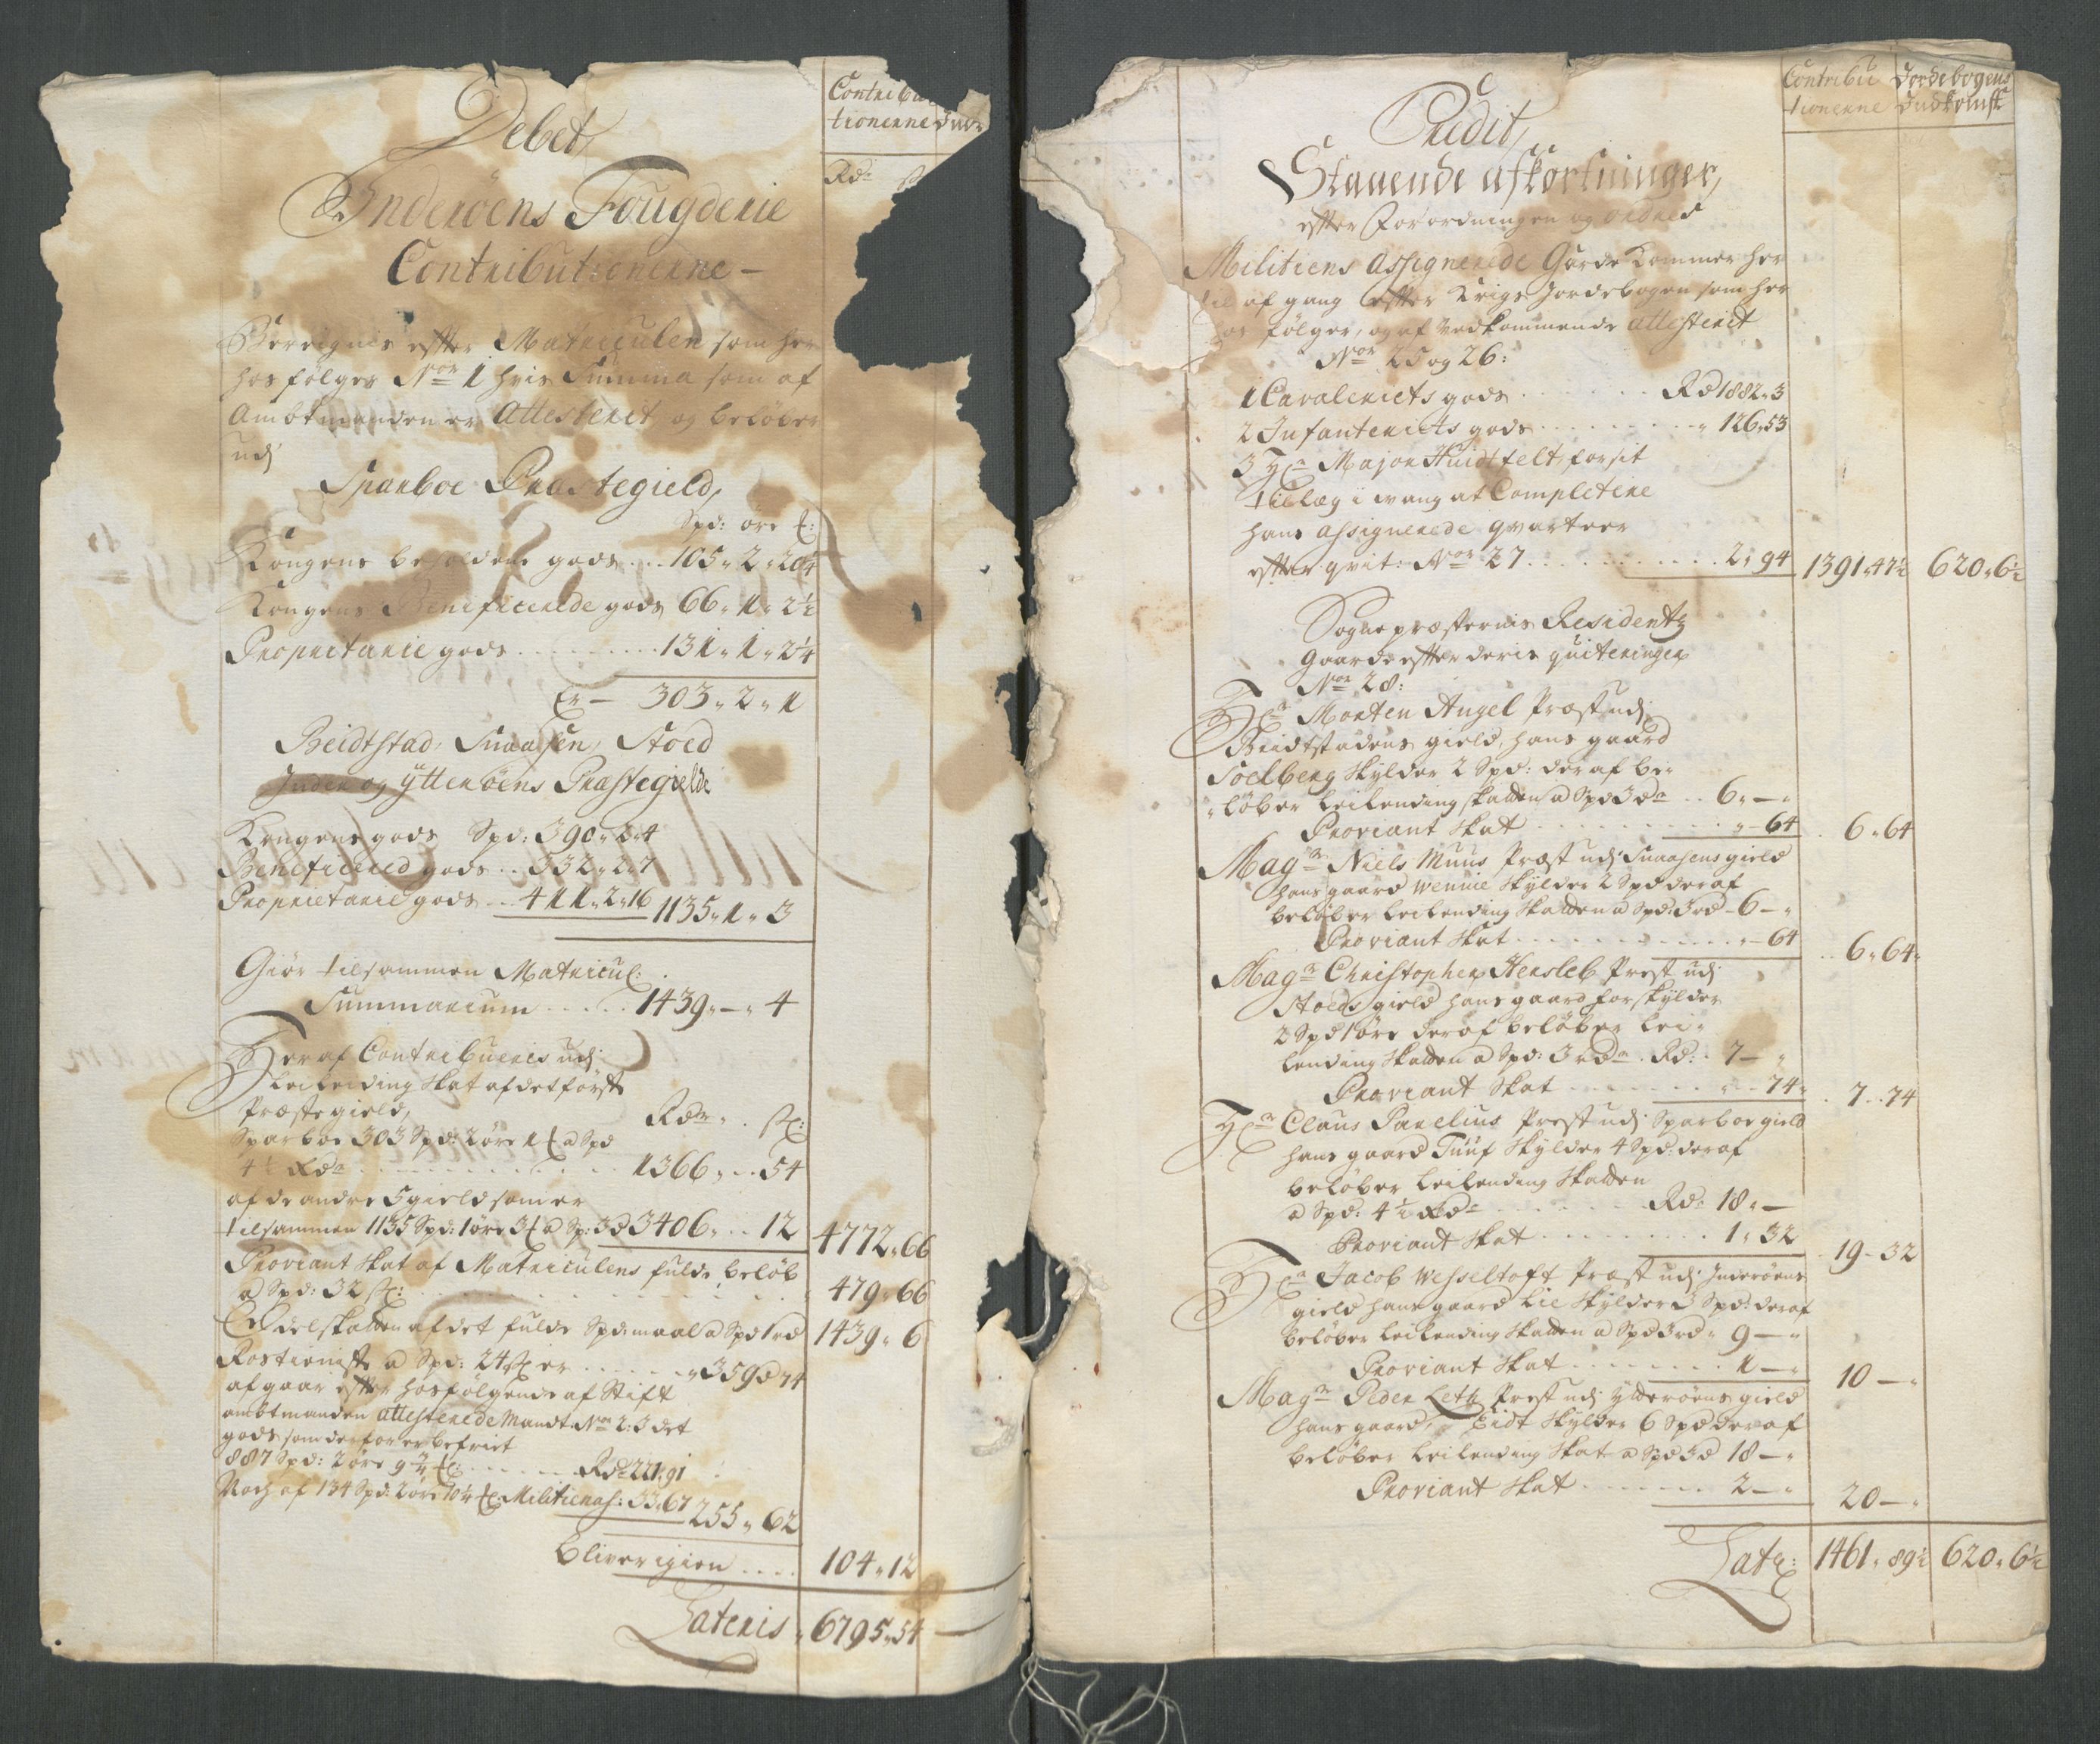 Contribu
tionerne Ind
Debet
Rdr ß
Inderöens Fougderie
Contributionerne –
Bereignis effter Matriculen som her
hos følger Nor 1 hvis Summa som af
Ambtmanden er Attesterit og beløber
udj
Sparboe Præstegield,
Spd: øre
Kongens beholdene gods ... 105 " 2 " 20¼
Kongens Benificerede gods 66 " 1 " 2½
Proprietarie gods ......... 131 " 1 " 2¼
Er – 303 " 2 " 1
Beidtstad, Snaasen, Stoed
Inder og ÿtteröens Præstegielde
Kongens gods Spd: 390 " 2 " 4
Beneficered gods .. 332 " 2 " 7
Proprietarie gods .. 411 " 2 " 16 1135 " 1 " 3
Giør tilsammen Matricul:
Summarium ..... 1439 " – " 4
Her af Contribueris udj
Leilending skat af det første
Præstegield,
Rdr " . ß:
Sparboe 303 Spd: 2 øre 1 a Spd
4½ Rdr ............ 1366 " .. 54
af de andre 5 gield som er
tilsammen 1135 Spd: 1 øre 3 a Sp: 3 d 3406 " .. 12 4772 " 66
Proviant skat af Matriculens fulde beløb
a Spd: 32 ß: ............ 479 " 66
Odelskatten af det fulde Spd:maal a Spd 1 rd 1439 " 6
Rostieniste a Spd: 24 ß er ...... " 359 d 74
afgaar effter hosfølgende af Stift
ambtmanden attesterede Mandt Nor 2: 3 det
gods som derfor er befriet
887 Spd: 2 øre 9¾ ...... Rdr 221 " 91
Noch af 134 Spd: 2 øre 10½ Militien as: 33 " 67
255 " 62
bliver igien .... 104 " 12
Lateris " 6795 " 54 –
Contribu Jordebogens
tionerne Indkomste
Credit,
Staaende afkortninger,
effter Forordningen og ordres
Militiens Assignerede Gaarde kommer her
til afgang effter Krigs Jordebogen som her
hos følger, og af vedkommende attesterit
Nor 25 og 26:
1 Cavaleriets gods ...... Rd 1882 " 3
2 Infanteriets gods ......... " 126 " 53
3 Hr Major Huidtfelt, for sit
tillæg i at Completere
hans assignerede qvarteer
effter qvit: Nor 27 ............ 2 " 94 1391 " 47½ 620 " 6½
Sogne præsternis Residentz
Gaarde effter deris quiteringer
Nor 28:
Hr Morten Angel Præst udj
Beidtstadens gield, hans gaard
Soelberg skylder 2 Spd: deraf be-
" løber leilending skatten a Spd 3 dr .. 6 " – "
Proviant skat ......... " – 64 . 6 " 64
Magr Niels Muus Præst udj Snaasens gield
hans gaard Wennie skylder 2 Spd deraf
beløber leilending skatten a Spd: 3 rd – 6 – "
Proviant skat ............ " – 64 .. 6 " 64 "
Magr Christopher Hersleb Prest udj
Stoeds gield hans gaard for skylder
2 Spd 1 øre deraf beløber lei-
lending skatten a Spd: 3 rdr . Rd: . 7 – "
Proviant skat ........ " .. 74 " . 7 .. 74
Hr Claus Parelius Prest udj Sparboe gield
hans gaard Tuuf skylder 4 Spd: deraf
beløber leilending skatten
a Spd: 4½ Rdr ........ Rd: 18 " –
Proviant skat ......... 1 " 32 19 – 32
Hr Jacob Wesseltoft Præst udj Inderøens
gield hans gaard Lie skylder 3 Spd: deraf
beløber leilending skatten a Spd 3 rd " 9 – "
Proviant skat ........ 1 – " 10 – "
Magr Peder Leth Prest udj Ytterøens gield
hans gaard, Eidt skylder 6 Spd deraf
beløber leilending skat a Spd 3 d 18 – "
Proviant skat ....... 2 – " 20 – "
Lats: 1461 " 89½ 620 " 6½